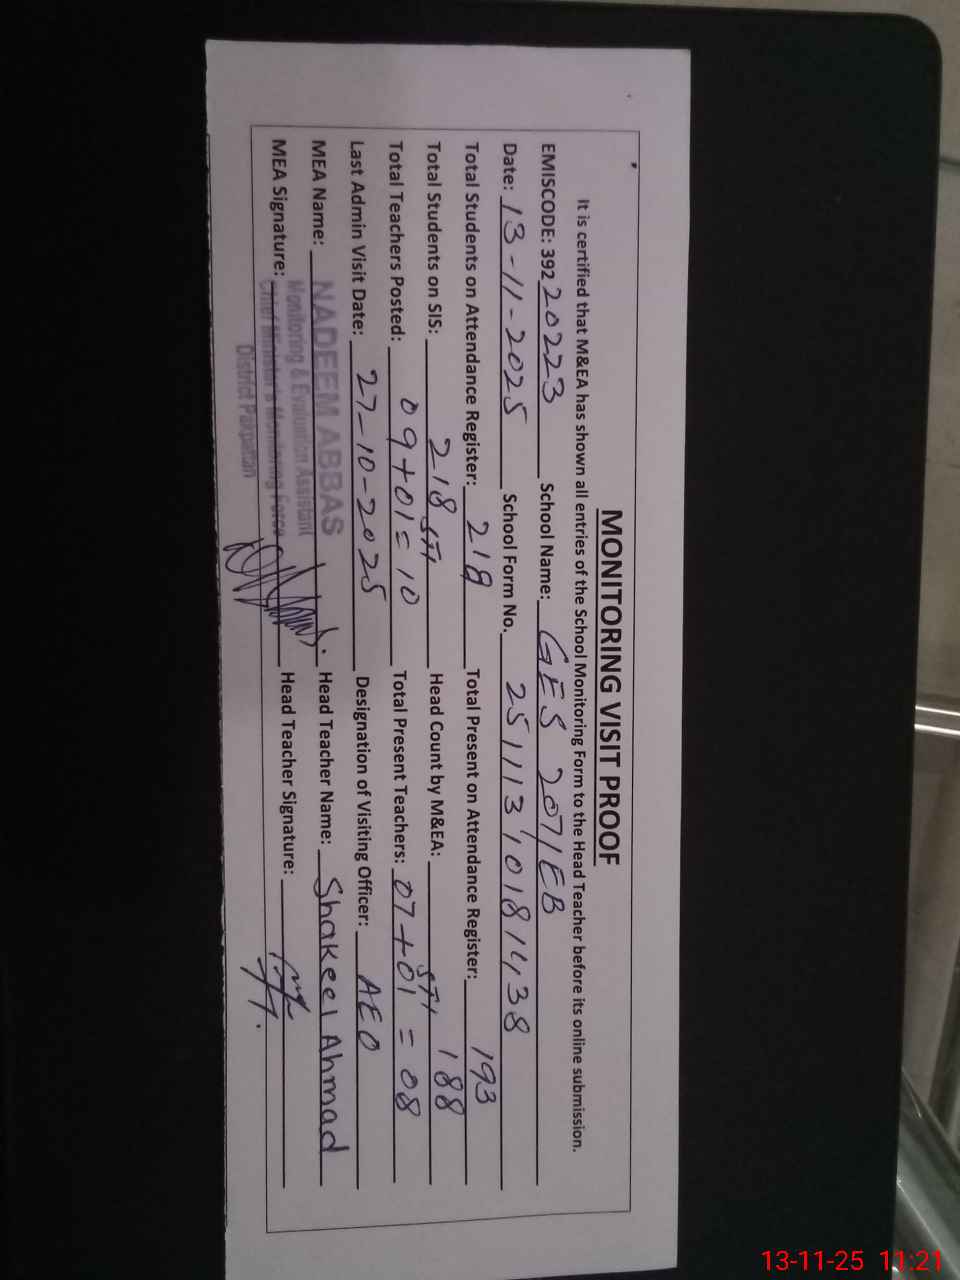 MONITORING VISIT PROOF
It is certified that M&EA has shown all entries of the School Monitoring Form to the Head Teacher before its online submission.
EMISCODE: 39220223 School Name: GES 207/EB
Date: 13-11-2025 School Form No. 25111310181438
Total Students on Attendance Register: 218 Total Present on Attendance Register: 193
Total Students on SIS: 218 Head Count by M&EA: 188
STI STI
Total Teachers Posted: 09+01=10 Total Present Teachers: 07+01=08
Last Admin Visit Date: 27-10-2025 Designation of Visiting Officer: AEO
MEA Name: NADEEM ABBAS Head Teacher Name: Shakeel Ahmad
Monitoring & Evaluation Assistant
MEA Signature: Chief Minister's Monitoring Force Head Teacher Signature:
District Pakpattan
13-11-25 11:21